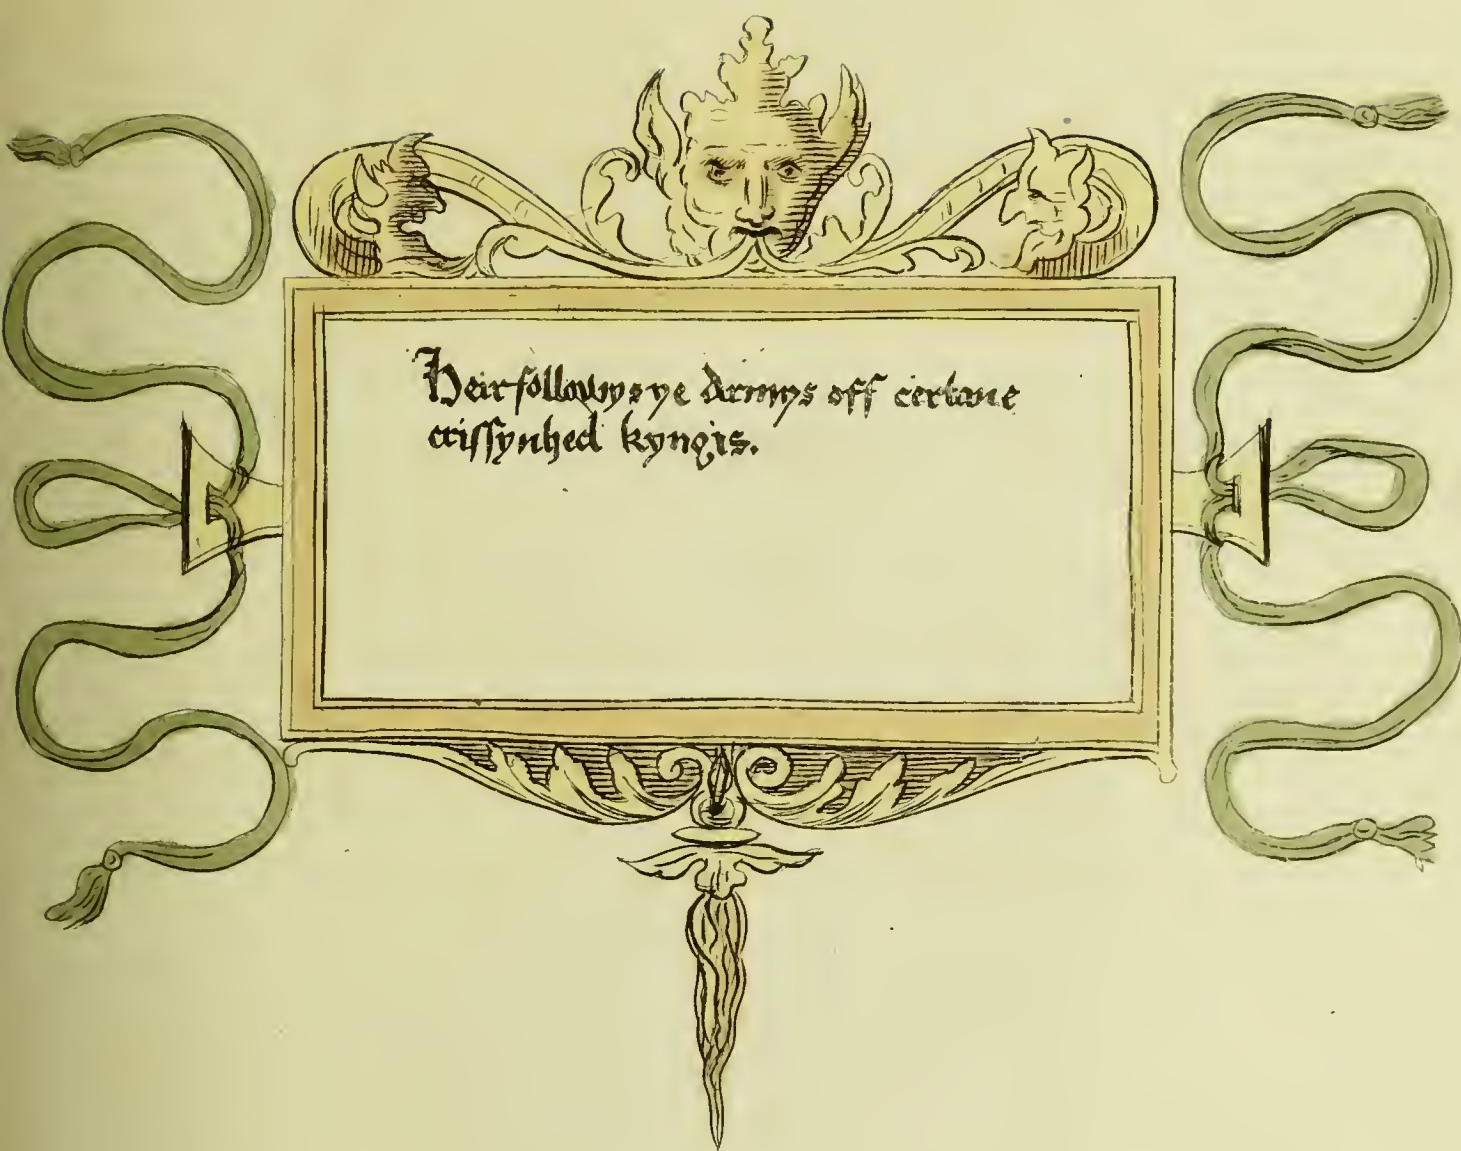 Heir followys ye Armys off certane
crissynhed kyngis.